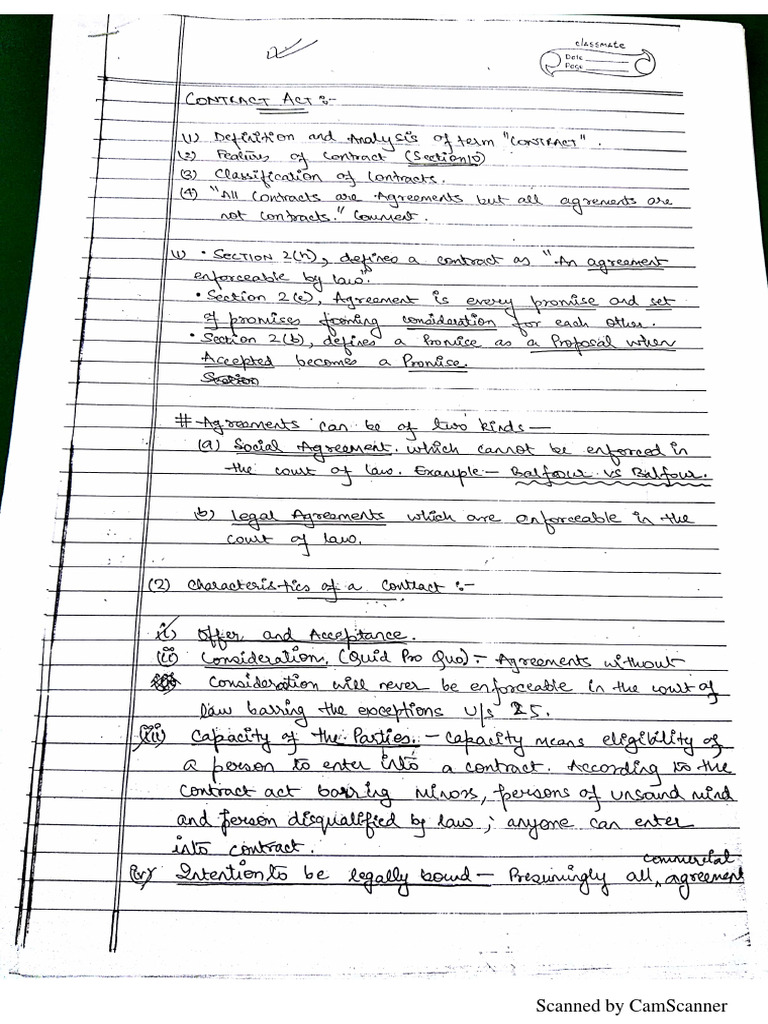 classmate
Date
Page
CONTRACT ACT :-
(1) Definition and Analysis of term "CONTRACT".
(2) Features of contract (Section 10)
(3) Classification of Contracts.
(4) "All Contracts are Agreements but all agreements are
not contracts." Comment.
(1) • SECTION 2(h), defines a contract as "An agreement
enforceable by law".
• Section 2(e), Agreement is every promise and set
of promises forming consideration for each other.
• Section 2(b), defines a Promise as a Proposal when
Accepted becomes a Promise.
Section
# Agreements can be of two kinds —
(a) Social Agreement which cannot be enforced in
the court of law. Example - Balfour vs Balfour.
b) Legal Agreements which are enforceable in the
court of law.
(2) Characteristics of a contract :-
i) Offer and Acceptance.
(ii) Consideration. (Quid Pro Quo) :- Agreements without
Consideration will never be enforceable in the court of
law barring the exceptions U/s 25.
(iii) Capacity of the Parties. - Capacity means eligibility of
a person to enter into a contract. According to the
Contract act barring minors, persons of unsound mind
and person disqualified by law ; anyone can enter
into contract.
commercial
(iv) Intention to be legally bound — Presumingly all, agreement
Scanned by CamScanner